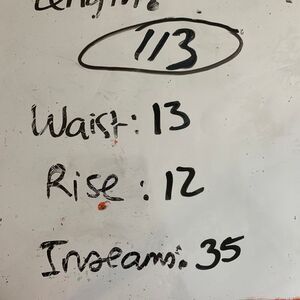 Length:
113
Waist: 13
Rise: 12
Inseams: 35